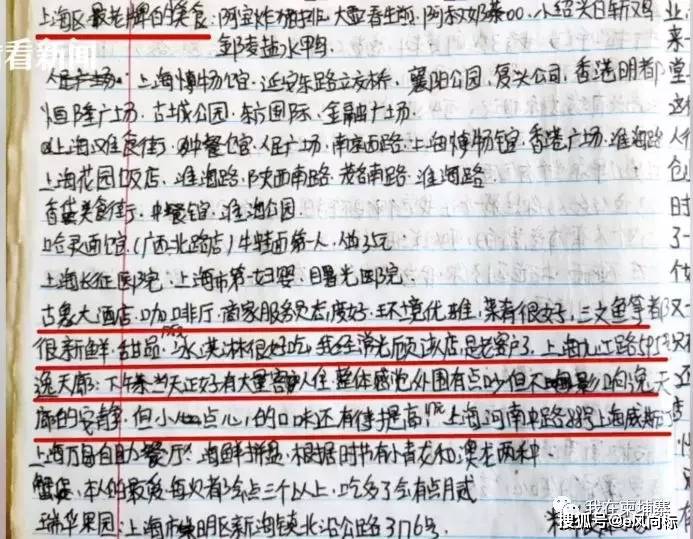 看看新闻
上海区最老牌的美食:阿宝炸猪排、大壶春生煎、阿和奶茶00、小绍兴白斩鸡
盐水鸭
人民广场、上海博物馆、延安东路立交桥、襄阳公园、复兴公司、香港明都
恒隆广场、古城公园、东方国际、金融广场
上海美食街、中餐馆、人民广场、南京西路、上海博物馆、香港广场、淮海路
上海花园饭店、淮海路、陕西南路、茂名南路、淮海路
美食街、中餐馆、淮海公园
哈灵面馆、(广西北路店)牛蛙面第一人、
上海长征医院、上海市第一妇婴、曙光医院
古象大酒店、咖啡厅、商家服务员态度好、环境优雅、菜肴很好、三文鱼等都
很新鲜、甜品、冰淇淋很好吃、我经常光顾该店、是老客户了、上海九江路595号
逸天廊:下午茶当天正好有大量客人入住、整体感觉外围有点吵但不影响逸天
廊的安静、但小点心的口味还有待提高、上海河南中路
上海万自助餐厅:海鲜拼盘、根据时节有小青龙和澳龙两种
蟹、本人的最爱每次都会点三个以上、吃多了会有点月贰
瑞华果园:上海市崇明区新海镇北沿公路3176号
业
来
堂
人
仓
时
了
我在柬埔寨
搜狐号@b风向标